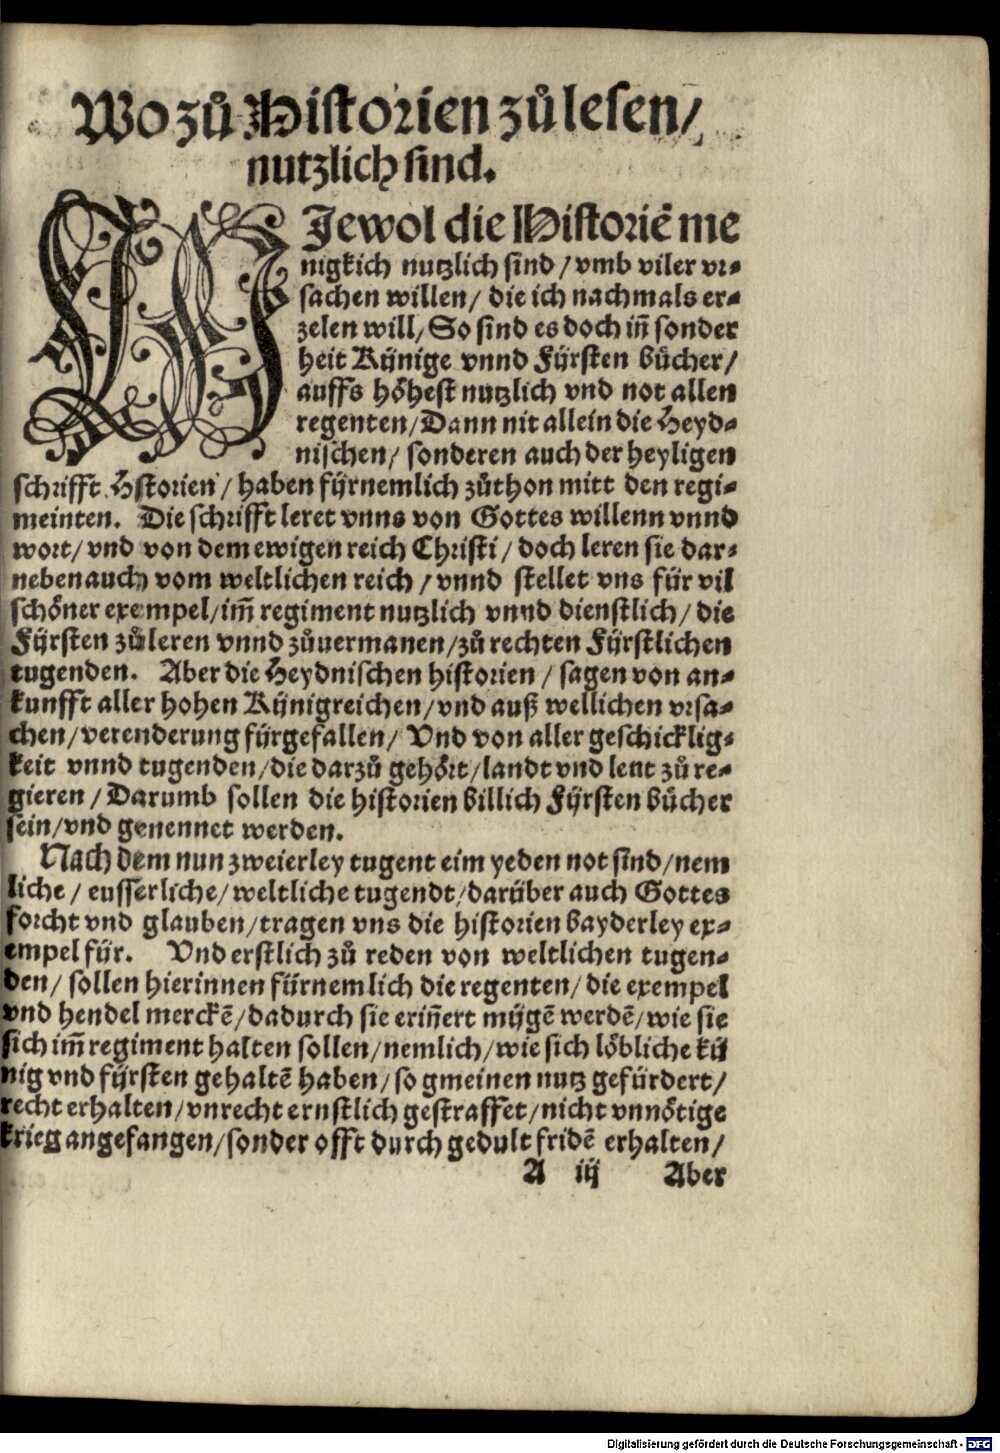 Wo zů Historien zů lesen/
nutzlich sind.
WJewol die Historiē me
nigkich nutzlich sind/ vmb viler vr-
sachen willen/ die ich nachmals er-
zelen will/ So sind es doch iñ sonder
heit Kÿnige vnnd Fÿrsten bůcher/
auffs höhest nutzlich vnd not allen
regenten/ Dann nit allein die Heyd-
nischen/ sonderen auch der heyligen
schrifft Hstorien/ haben fÿrnemlich zůthon mitt den regi-
meinten. Die schrifft leret vnns von Gottes willenn vnnd
wort/ vnd von dem ewigen reich Christi/ doch leren sie dar-
neben auch vom weltlichen reich/ vnnd stellet vns für vil
schöner exempel/ im̃ regiment nutzlich vnnd dienstlich/ die
Fÿrsten zů leren vnnd zůuermanen/ zů rechten Fÿrstlichen
tugenden. Aber die Heydnischen historien/ sagen von an-
kunfft aller hohen Kÿnigreichen/ vnd auß wellichen vrsa-
chen/ verenderung fÿrgefallen/ Vnd von aller geschicklig-
keit vnnd tugenden/ die darzů gehört/ landt vnd leut zů re-
gieren/ Darumb sollen die historien billich Fÿrsten bůcher
sein/ vnd genennet werden.
Nach dem nun zweierley tugent eim yeden not sind/ nem
liche/ eusserliche/ weltliche tugendt/ darüber auch Gottes
forcht vnd glauben/ tragen vns die historien bayderley ex-
empel für. Vnd erstlich zů reden von weltlichen tugen-
den/ sollen hierinnen fürnemlich die regenten/ die exempel
vnd hendel merckē/ dadurch sie eriñert mÿgē werdē/ wie sie
sich im̃ regiment halten sollen/ nemlich/ wie sich löbliche kü
nig vnd fÿrsten gehaltē haben/ so gmeinen nutz gefürdert/
recht erhalten/ vnrecht ernstlich gestraffet/ nicht vnnötige
krieg angefangen/ sonder offt durch gedult fridē erhalten/
A iij Aber
Digitalisierung gefördert durch die Deutsche Forschungsgemeinschaft - DFG